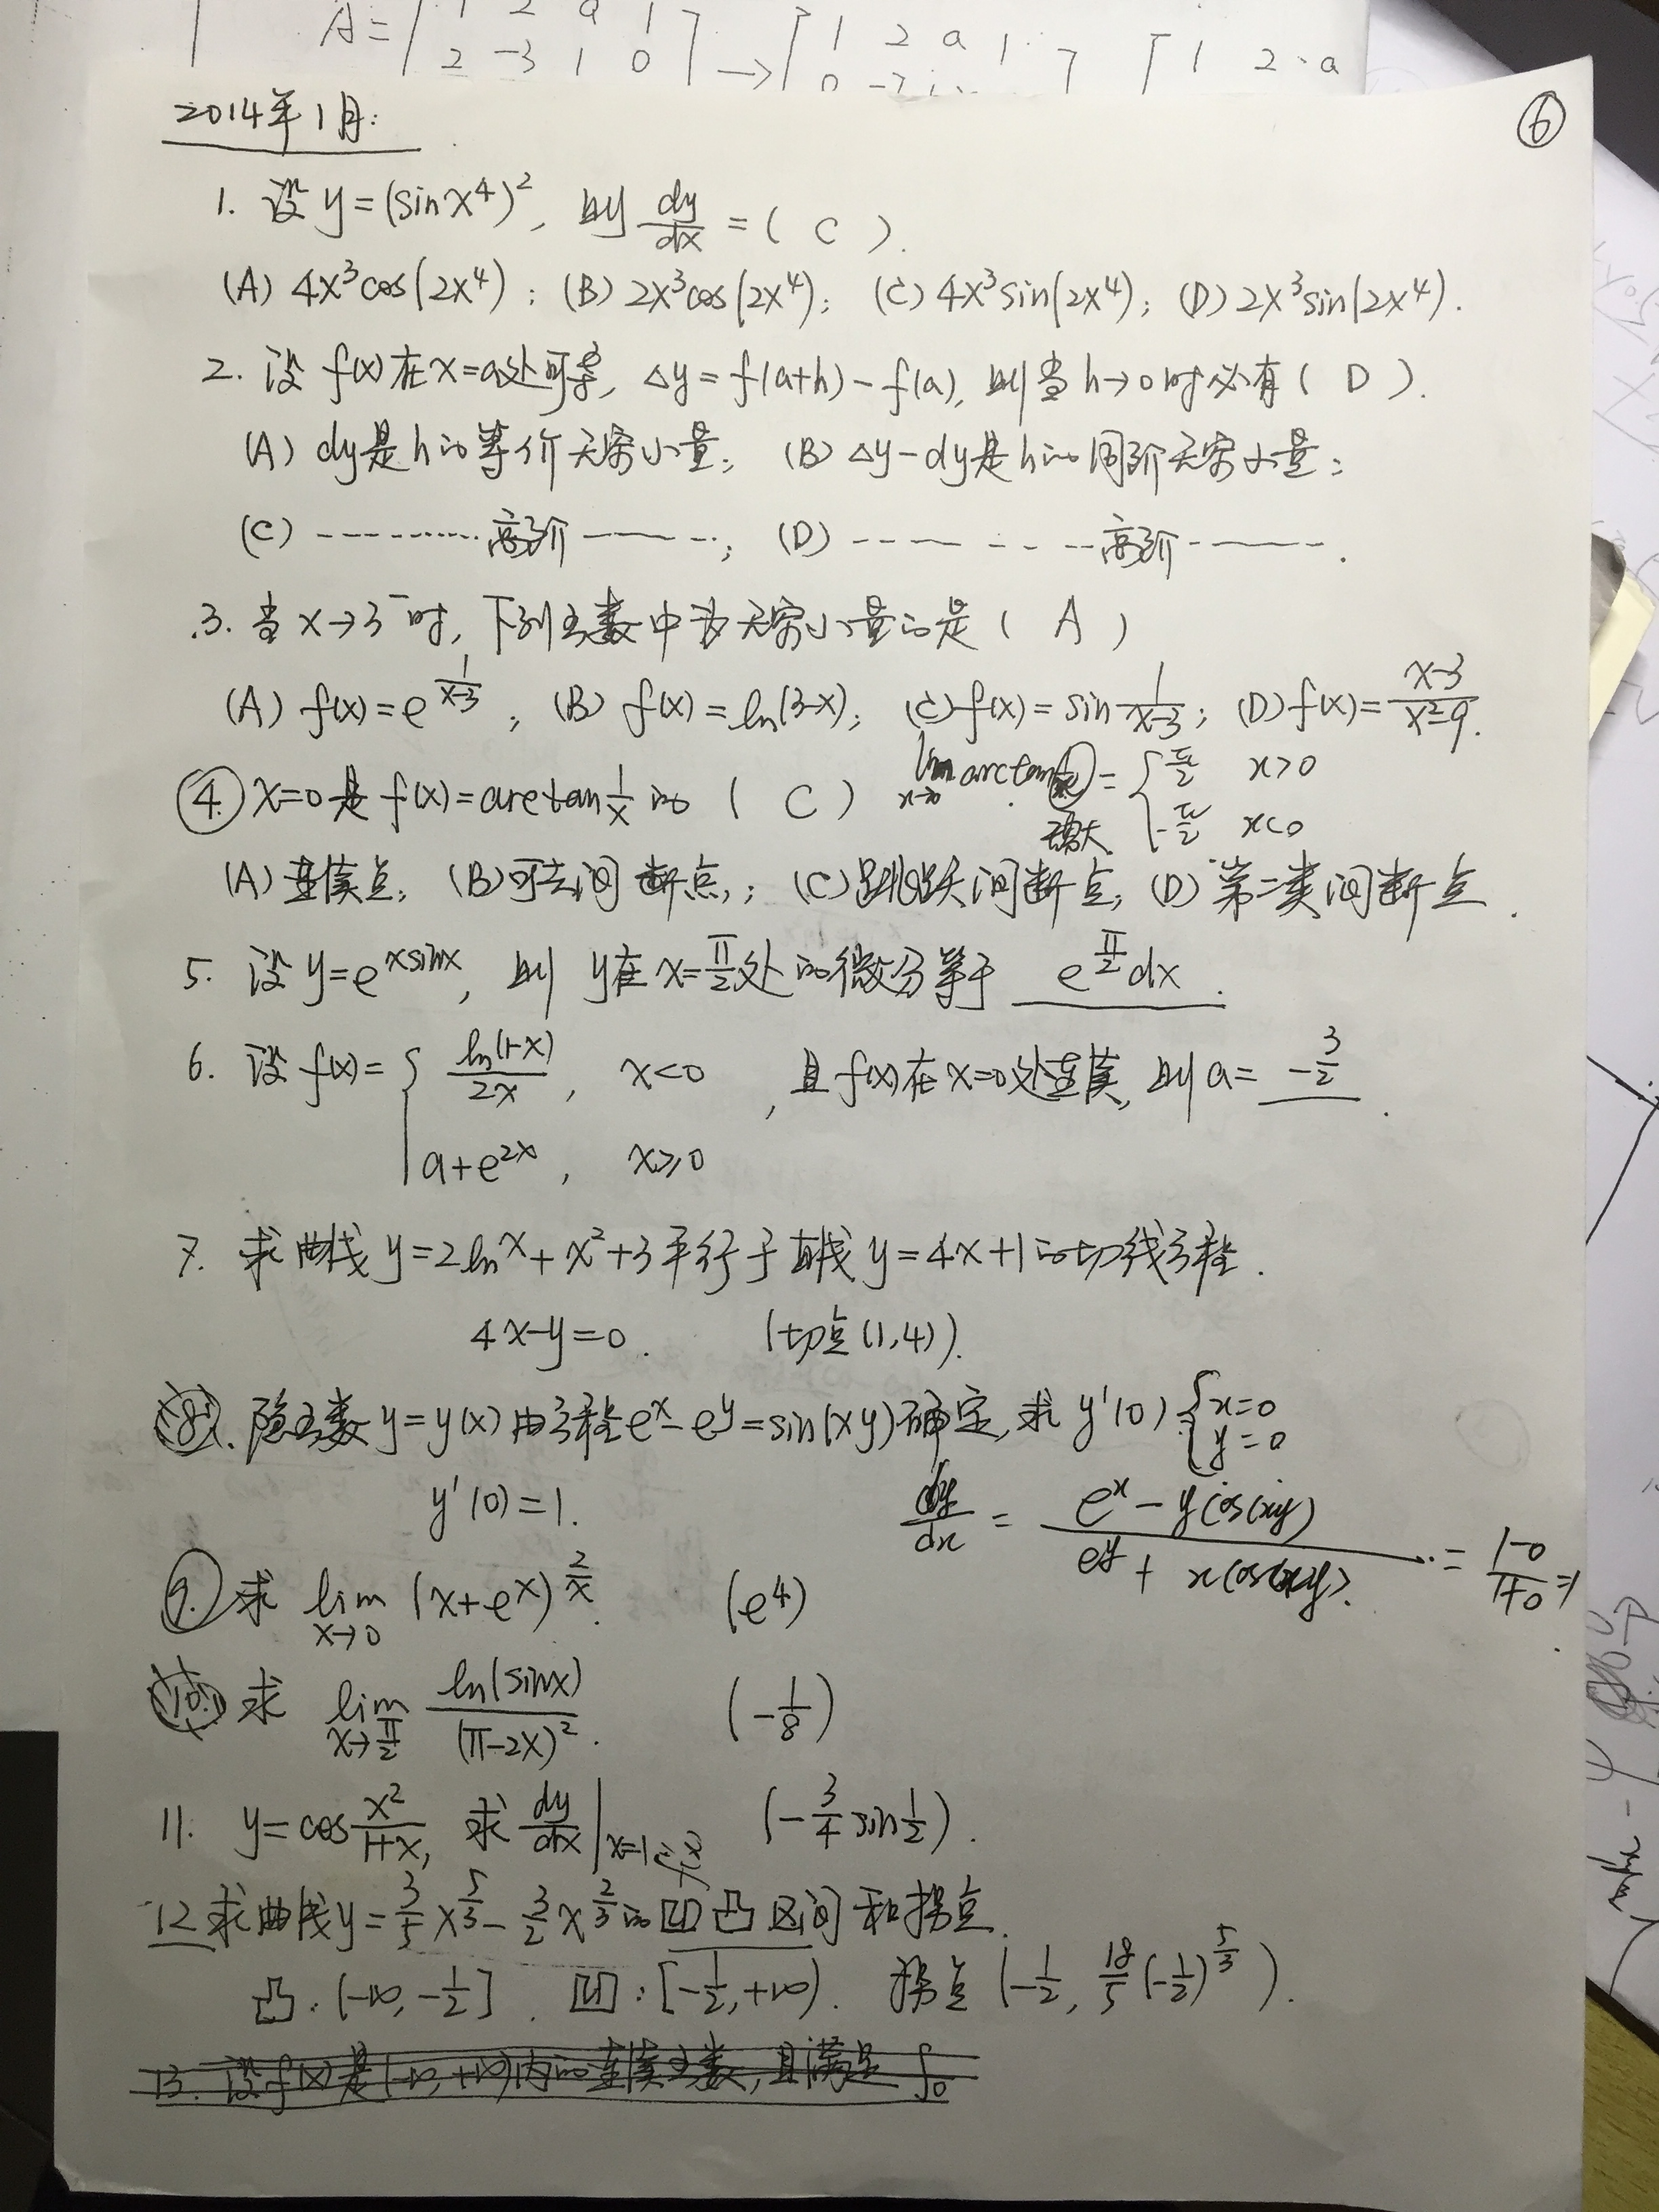 A = [ 1 2 a 1
2 -3 1 0 ] → [ 1 2 a 1 ] [ 1 2 a
2014年1月:
⑥
1. 设 y=(sinx⁴)², 则 dy/dx = ( C ).
(A) 4x³cos(2x⁴); (B) 2x³cos(2x⁴); (C) 4x³sin(2x⁴); (D) 2x³sin(2x⁴).
2. 设 f(x) 在 x=a处可导, Δy=f(a+h)-f(a), 则当 h→0时必有 ( D ).
(A) dy是h的等价无穷小量; (B) Δy-dy是h的同阶无穷小量;
(C) ---------- 高阶 ------; (D) ---------- 高阶 ------.
3. 当 x→3⁻时, 下列函数中为无穷小量的是 ( A )
(A) f(x)=e^(1/(x-3)); (B) f(x)=ln(3-x); (C) f(x)=sin 1/(x-3); (D) f(x)=(x-3)/(x²-9).
④ x=0是 f(x)=arctan 1/x 的 ( C ) lim x→0 arctan = { π/2 x>0
-π/2 x<0
(A) 连续点; (B) 可去间断点; (C) 跳跃间断点; (D) 第二类间断点.
5. 设 y=e^(xsinx), 则 y在 x=π/2处的微分等于 e^(π/2)dx.
6. 设 f(x)= { ln(1-x)/2x, x<0 , 且 f(x)在 x=0处连续, 则 a= -3/2.
a+e^(2x), x≥0
7. 求曲线 y=2lnx+x²+3平行于直线 y=4x+1的切线方程.
4x-y=0. (切点(1,4)).
⑧. 隐函数 y=y(x)由方程 e^x-e^y=sin(xy)确定, 求 y'(0) { x=0
y=0
y'(0)=1. dy/dx = (e^x - ycos(xy))/(e^y + xcos(xy)) = (1-0)/(1+0) =1
⑨ 求 lim x→0 (x+e^x)^(2/x). (e⁴)
⑩ 求 lim x→π/2 ln(sinx)/(π-2x)². (-1/8)
11. y=cos x²/(1+x), 求 dy/dx | x=1 (-3/4 sin 1/2).
12. 求曲线 y=3/5 x^(5/3) - 3/2 x^(2/3) 的凹凸区间和拐点.
凸: (-∞, -1/2]. 凹: [-1/2, +∞). 拐点 (-1/2, 18/5(-1/2)^(5/3)).
13. 设 f(x)是(-∞,+∞)内的连续函数, 且满足 ∫₀